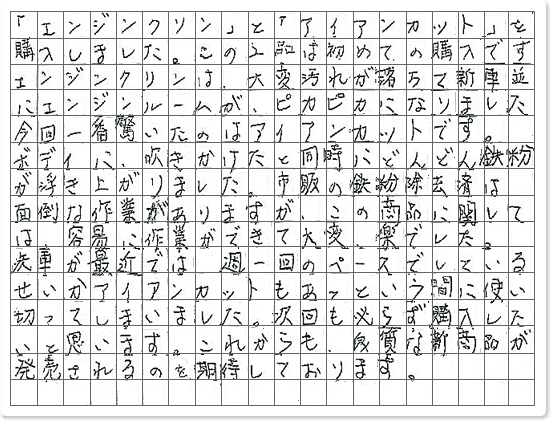 「エンジンクリン」と「アイアンカット」を
購入しました。この2品は初めての購入です
エンジンクリンは、大変汚れが落ちて新車並
にエンジンルームが、ピカピカになりました
今回一番驚いたのはアイアンカットです。
ボディに、吹きかけたと同時にどんどん鉄粉
が浮き上がりました。市販の鉄粉除去済は
面倒な作業がありますが、この商品に関して
は、容易に作業ができて大変、楽でした。
洗車が最近では、週一回のペースでしている
せいかアイアンカットもあっという間に使い
切ってしまいました。次回も、必ず購入した
いと思います。これからも、良質な新商品が
発売されるのを期待しております。